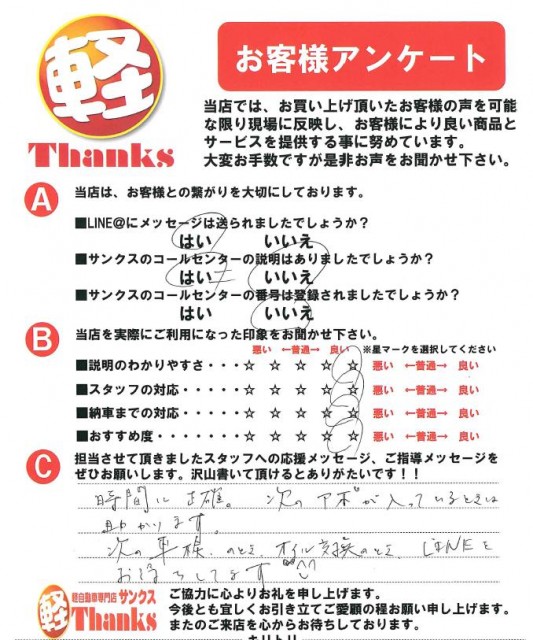 軽
Thanks
お客様アンケート
当店では、お買い上げ頂いたお客様の声を可能
な限り現場に反映し、お客様により良い商品と
サービスを提供する事に努めています。
大変お手数ですが是非お声をお聞かせ下さい。
A 当店は、お客様との繋がりを大切にしております。
■LINE@にメッセージは送られましたでしょうか？
はい いいえ
■サンクスのコールセンターの説明はありましたでしょうか？
はい いいえ
■サンクスのコールセンターの番号は登録されましたでしょうか？
はい いいえ
B 当店を実際にご利用になった印象をお聞かせ下さい。
悪い ←普通→ 良い ※星マークを選択してください
■説明のわかりやすさ・・・・☆ ☆ ☆ ☆ ☆ 悪い ←普通→ 良い
■スタッフの対応・・・・・・☆ ☆ ☆ ☆ ☆ 悪い ←普通→ 良い
■納車までの対応・・・・・・☆ ☆ ☆ ☆ ☆ 悪い ←普通→ 良い
■おすすめ度・・・・・・・・☆ ☆ ☆ ☆ ☆ 悪い ←普通→ 良い
C 担当させて頂きましたスタッフへの応援メッセージ、ご指導メッセージを
ぜひお願いします。沢山書いて頂けるとありがたいです！！
時間に正確。次のアポが入っているときは
助かります。
次の車検のとき、オイル交換のとき、LINEを
お待ちしてます
軽 軽自動車専門店 サンクス
Thanks
ご協力に心よりお礼を申し上げます。
今後とも宜しくお引き立てご愛顧の程お願い申し上げます。
またのご来店を心からお待ちしております。
キリトリ